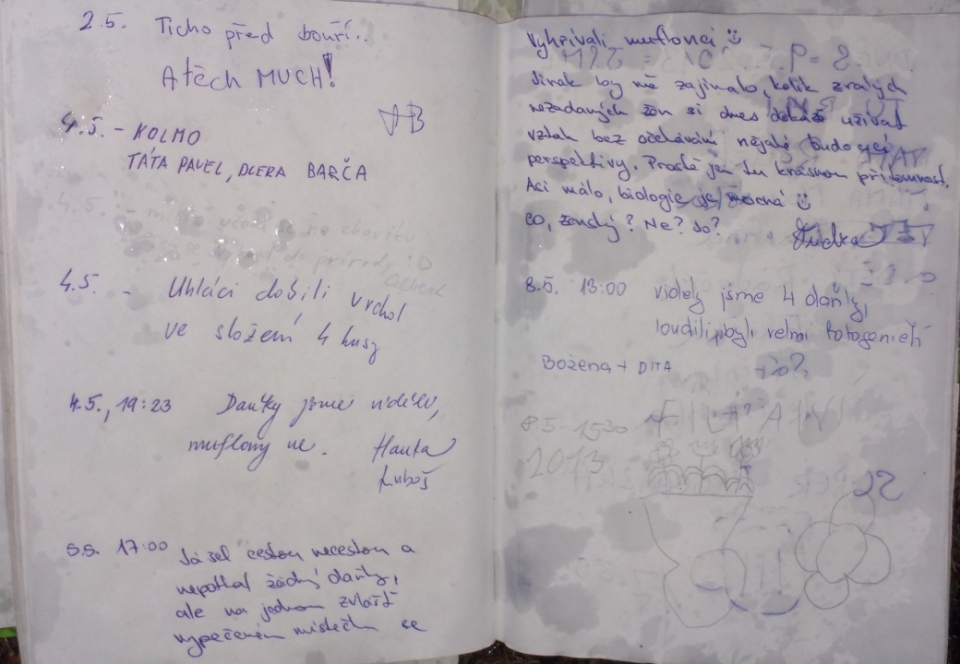 2.5. Ticho před bouří..
A těch MUCH!
4.5. - KOLMO
TÁTA PAVEL, DCERA BARČA
4.5. -
do přírody :D
4.5. - Uhláci dobili vrchol
ve složení 4 kusy
4.5., 19:23 Daňky jsme viděli,
muflony ne. Hanka
Luboš
5.5. 17:00 Já šel cestou necestou a
nepotkal žádný daňky,
ale na jednom zvlášť
vypečeném místečku se
vyhřívali muflonci
Jinak by mě zajímalo, kolik zralých
nezadaných žen si dnes dokáže užívat
vztah bez očekávání nějaké budoucí
perspektivy. Prostě jen tu krásnou přítomnost.
Asi málo, biologie je mocná
co, ženský? Ne? Jo?
8.5. 13:00 viděly jsme 4 daňky,
loudili, byli velmi fotogeničtí
Božena + DITA
8.5. 1530
2013